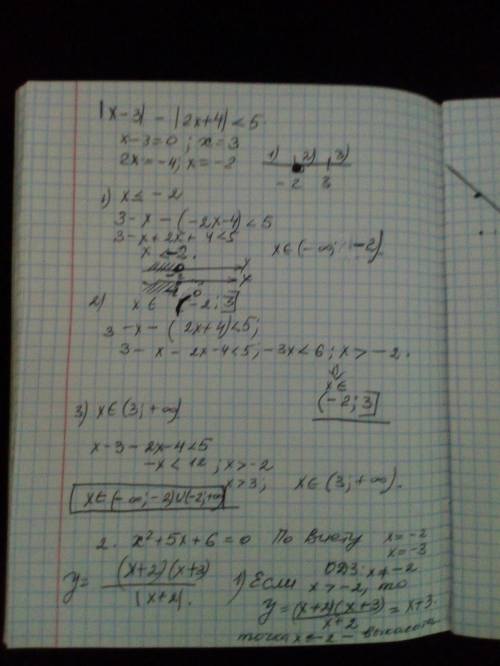 |x-3| - |2x+4| < 5
x-3=0 ; x=3
2x=-4, x=-2
1) 2) 3)
-2 3
1) x ≤ -2
3-x-(-2x-4)<5
3-x+2x+4<5
x<-2.
x∈(-∞; -2).
2) x ∈ (-2; 3]
3-x-(2x+4)<5;
3-x-2x-4<5, -3x<6; x>-2.
x∈
(-2; 3]
3) x∈(3; +∞)
x-3-2x-4<5
-x<12 ; x>-2
x>3, x∈(3; +∞).
x∈(-∞; -2)∪(-2; +∞)
2. x²+5x+6=0 По Виету x=-2
x=-3
ОДЗ: x≠-2
y= (x+2)(x+3) / |x+2|. 1) Если x>-2, то
y= (x+2)(x+3) / x+2 = x+3.
точка x=-2 -